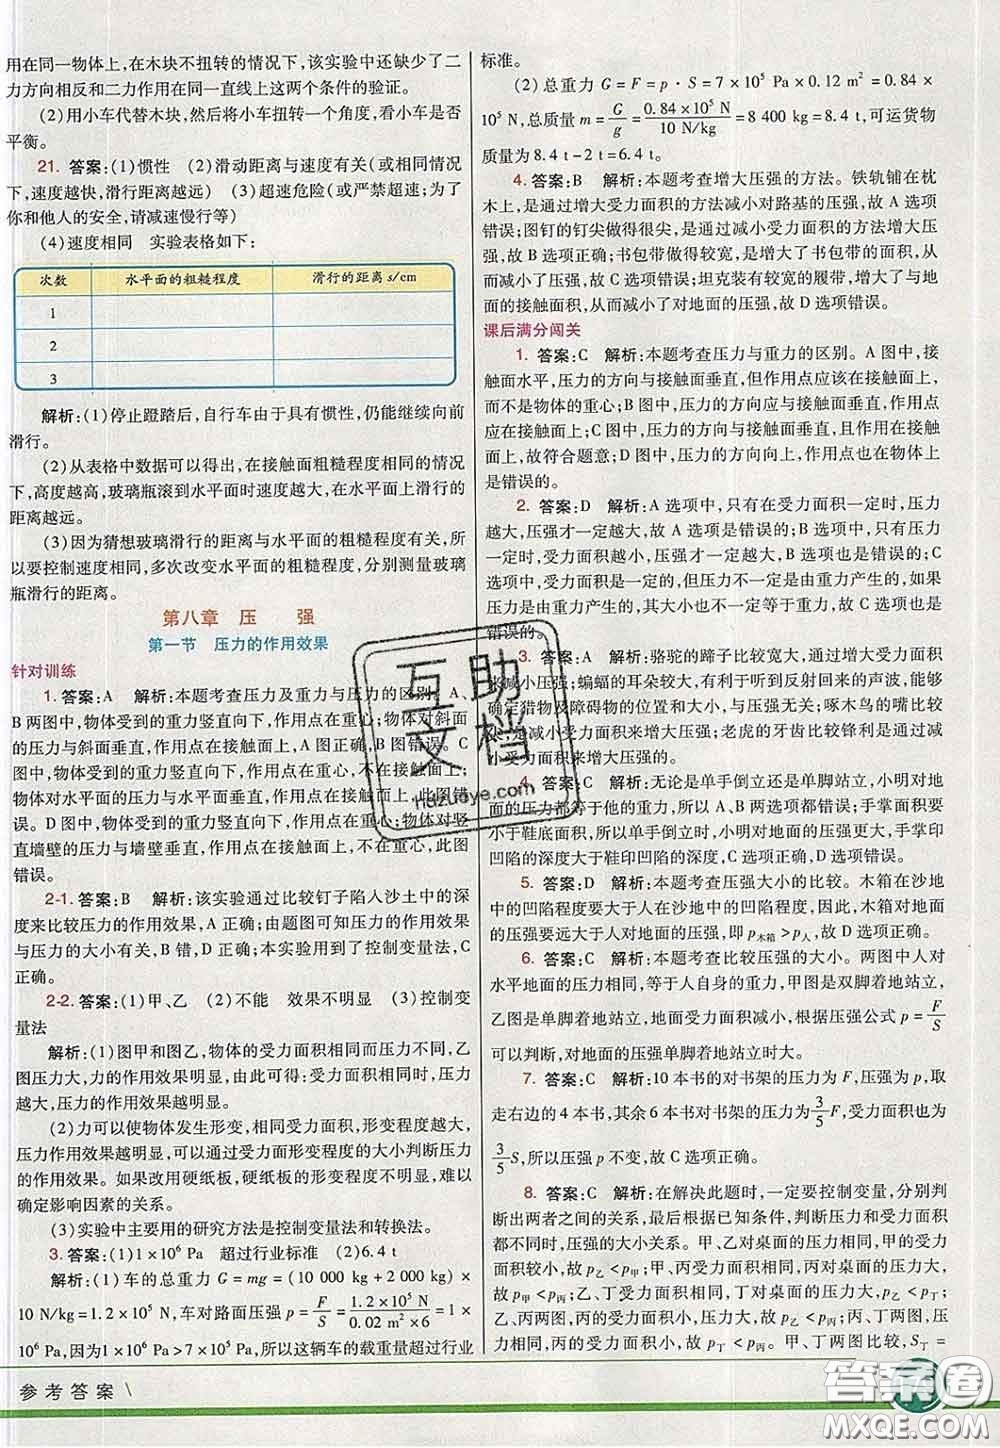 用在同一物体上,在木块不扭转的情况下,该实验中还缺少了二
力方向相反和二力作用在同一直线上这两个条件的验证。
(2)用小车代替木块,然后将小车扭转一个角度,看小车是否
平衡。
21. 答案:(1)惯性 (2)滑动距离与速度有关(或相同情况
下,速度越快,滑行距离越远) (3)超速危险(或严禁超速;为了
你和他人的安全,请减速慢行等)
(4)速度相同 实验表格如下:
次数 水平面的粗糙程度 滑行的距离 s/cm
1
2
3
解析:(1)停止蹬踏后,自行车由于具有惯性,仍能继续向前
滑行。
(2)从表格中数据可以得出,在接触面粗糙程度相同的情况
下,高度越高,玻璃瓶滚到水平面时速度越大,在水平面上滑行的
的距离越远。
(3)因为猜想玻璃滑行的距离与水平面的粗糙程度有关,所
以要控制速度相同,多次改变水平面的粗糙程度,分别测量玻璃
瓶滑行的距离。
第八章 压 强
第一节 压力的作用效果
针对训练
1. 答案:A 解析:本题考查压力及重力与压力的区别。A、
B 两图中,物体受到的重力竖直向下,作用点在重心;物体对斜面
的压力与斜面垂直,作用点在接触面上,A 图正确,B 图错误。C
图中,物体受到的重力竖直向下,作用点在重心,不在接触面上;
物体对水平面的压力与水平面垂直,作用点在接触面上,此图错
误。D 图中,物体受到的重力竖直向下,作用点在重心;物体对竖
直墙壁的压力与墙壁垂直,作用点在接触面上,不在重心,此图
错误。
2-1. 答案:B 解析:该实验通过比较钉子陷入沙土中的深
度来比较压力的作用效果,A 正确;由题图可知压力的作用效果
与压力的大小有关,B 错,D 正确;本实验用到了控制变量法,C
正确。
2-2. 答案:(1)甲、乙 (2)不能 效果不明显 (3)控制变
量法
解析:(1)图甲和图乙,物体的受力面积相同而压力不同,乙
图压力大,力的作用效果明显。由此可得:受力面积相同时,压力
越大,压力的作用效果越明显。
(2)力可以使物体发生形变,相同受力面积,形变程度越大,
压力作用效果越明显,可以通过受力面形变程度的大小判断压力
的作用效果。如果改用硬纸板,硬纸板的形变程度不明显,难以
确定影响因素的关系。
(3)实验中主要用的研究方法是控制变量法和转换法。
3. 答案:(1)1×10⁶ Pa 超过行业标准 (2)6.4 t
解析:(1)车的总重力 G=mg=(10 000 kg+2 000 kg)×
10 N/kg=1.2×10⁵ N,车对路面压强 p=F/S=1.2×10⁵ N/(0.02 m²×6)=1×
10⁶ Pa,因为1×10⁶ Pa>7×10⁵ Pa,所以这辆车的载重量超过行业
标准。
(2)总重力 G=F=p·S=7×10⁵ Pa×0.12 m²=0.84×
10⁵ N,总质量 m=G/g=0.84×10⁵ N/(10 N/kg)=8 400 kg=8.4 t,可运货物
质量为 8.4 t-2 t=6.4 t。
4. 答案:B 解析:本题考查增大压强的方法。铁轨铺在枕
木上,是通过增大受力面积的方法减小对路基的压强,故 A 选项
错误;图钉的钉尖做得很尖,是通过减小受力面积的方法增大压
强,故 B 选项正确;书包带做得较宽,是增大了书包带的面积,从
而减小了压强,故 C 选项错误;坦克装有较宽的履带,增大了与地
面的接触面积,从而减小了对地面的压强,故 D 选项错误。
课后满分闯关
1. 答案:C 解析:本题考查压力与重力的区别。A 图中,接
触面水平,压力的方向与接触面垂直,但作用点应该在接触面上,
而不是物体的重心;B 图中,压力的方向应与接触面垂直,作用点
应在接触面上;C 图中,压力的方向与接触面垂直,作用点在接触面
上,故符合题意;D 图中,压力的方向向上,作用点也在物体上,
是错误的。
2. 答案:D 解析:A 选项中,只有在受力面积一定时,压力
越大,压强才一定越大,故 A 选项是错误的;B 选项中,只有压力
一定时,受力面积越小,压强才一定越大,故 B 选项也是错误的;C
选项中,受力面积是一定的,但压力不一定是由重力产生的,如果
是由重力产生的,其大小也不一定等于重力的大小,故 C 选项也是
错误的。
3. 答案:A 解析:骆驼的蹄子比较宽大,通过增大受力面积
来减小压强;蝙蝠的耳朵较大,有利于听到反射回来的声波,能够准
确定猎物及障碍物的位置和大小,与压强无关;啄木鸟的嘴比较尖,
减小受力面积来增大压强;老虎的牙齿比较锋利是通过减
小受力面积来增大压强。
4. 答案:C 解析:无论是单手倒立还是单脚站立,小明对地
面的压力都等于他的重力,所以 A、B 两选项都错误;手掌面积要
小于鞋底面积,所以单手倒立时,小明对地面的压强更大,手掌印
凹陷的深度大于鞋印凹陷的深度,C 选项正确,D 选项错误。
5. 答案:D 解析:本题考查压强大小的比较。木箱在沙地
中的凹陷程度要大于人在沙地中的凹陷程度,因此,木箱对地面
的压强要远大于人对地面的压强,即 p木箱>p人,故 D 选项正确。
6. 答案:C 解析:本题考查比较压强的大小。两图中人对
水平地面的压力相等,等于人自身的重力,甲图是双脚着地站立,
乙图是单脚着地站立,受力面积减小,根据压强公式 p=F/S
可以判断,对地面的压强单脚着地站立时大。
7. 答案:C 解析:10 本书的对书架的压力为 F,压强为 p,取
走右边的 4 本书,其余 6 本书对书架的压力为3/5F,受力面积也为
3/5S,所以压强 p 不变,故 C 选项正确。
8. 答案:C 解析:在解决此题时,一定要控制变量,分别判
断出两者之间的关系,最后根据已知条件,判断压力和受力面积
都不同时,压强的大小关系。甲、乙对桌面的压力大小相等,S甲>
S乙,所以 p甲<p乙;甲、丙图比较,S甲=S丙,丙对桌面的压力大,所
以 p甲<p丙;乙、丁图比较,S乙=S丁,丁对桌面的压力大,p乙<p丁;
乙、丙两图,丙的受力面积小,压力大,故 p乙<p丙;丙、丁两图,压
力大小相同,丙的受力面积小,故 p丁<p丙。甲、丁图比较,S丁=
参考答案
互助文档
hdzuoye.com
答案圈
MXQE.COM